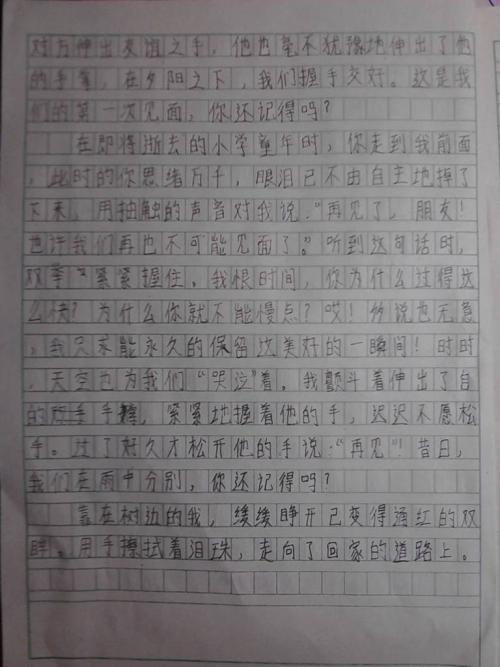 对方伸出友谊之手，他也毫不犹豫地伸出了他
的手掌，在夕阳之下，我们握手交好。这是我
们的第一次见面，你还记得吗？
在即将逝去的小学童年时，你走到我前面
，此时的你思绪万千，眼泪已不由自主地掉了
下来，用抽触的声音对我说：“再见了，朋友！
也许我们再也不可能见面了。”听到这句话时，
双手紧紧握住。我恨时间，你为什么过得这
么快？为什么你就不能慢点？哎！多说也无意
，我只求能永久的保留这美好的一瞬间！时时
，天空也为我们“哭泣”着。我颤斗着伸出了自
的手，紧紧地握着他的手，迟迟不愿松
手。过了好久才松开他的手说：“再见”！昔日，
我们在雨中分别，你还记得吗？
靠在树边的我，缓缓睁开已变得通红的双
眸。用手擦拭着泪珠，走向了回家的道路上。